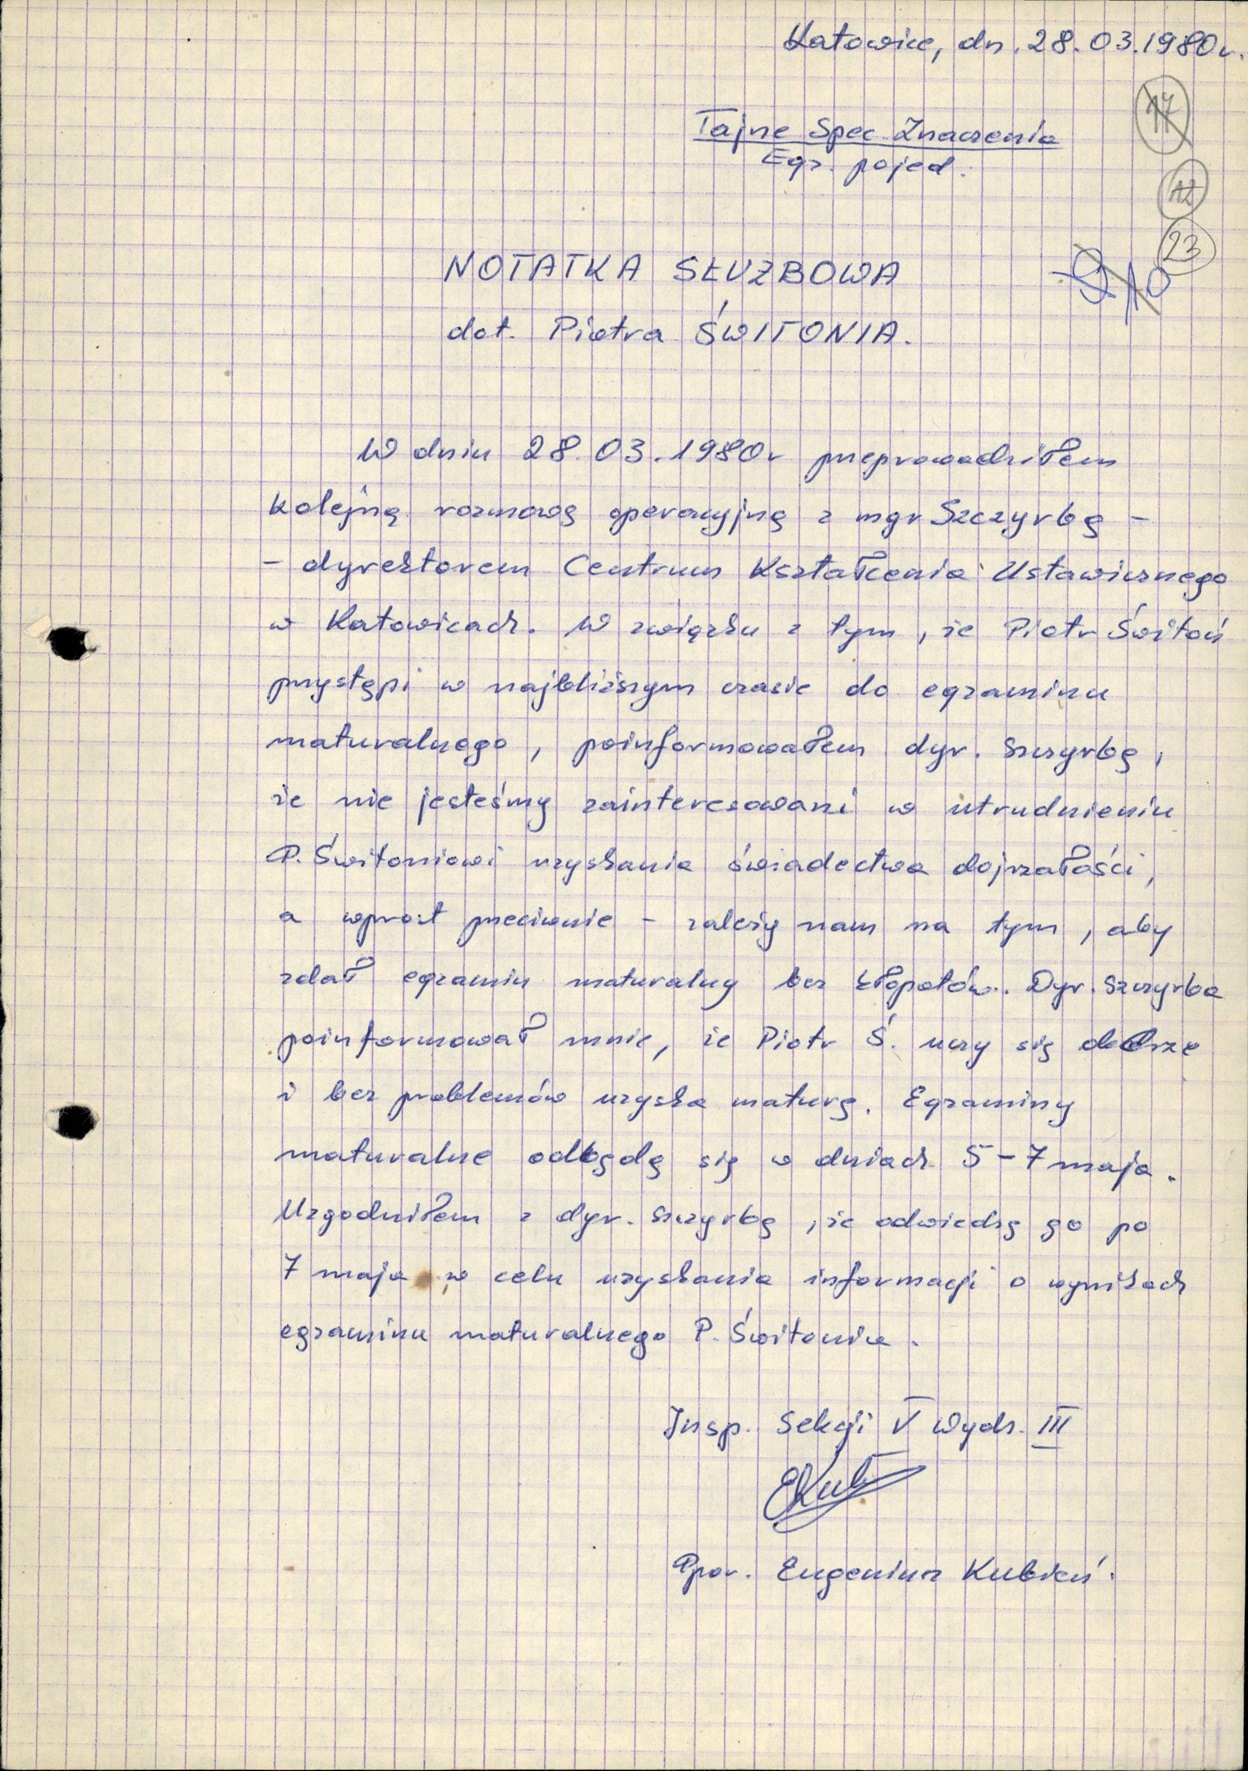 Katowice, dn. 28.03.1980r.
17
Tajne Spec. Znaczenia
Egz. pojed.
12
23
NOTATKA SŁUŻBOWA
9 10
dot. Piotra ŚWITONIA.
W dniu 28.03.1980r przeprowadziłem
kolejną rozmowę operacyjną z mgr Szczyrbą -
- dyrektorem Centrum Kształcenia Ustawicznego
w Katowicach. W związku z tym, że Piotr Świtoń
przystąpi w najbliższym czasie do egzaminu
maturalnego, poinformowałem dyr. Szczyrbę,
że nie jesteśmy zainteresowani w utrudnieniu
P. Świtoniowi uzyskania świadectwa dojrzałości,
a wprost przeciwnie - zależy nam na tym, aby
zdał egzamin maturalny bez kłopotów. Dyr. Szczyrba
poinformował mnie, że Piotr Ś. uczy się dobrze
i bez problemów uzyska maturę. Egzaminy
maturalne odbędą się w dniach 5-7 maja.
Uzgodniłem z dyr. Szczyrbą, że odwiedzę go po
7 maja w celu uzyskania informacji o wynikach
egzaminu maturalnego P. Świtonia.
Insp. Sekcji V Wydz. III
EKub
Ppor. Eugeniusz Kubień.